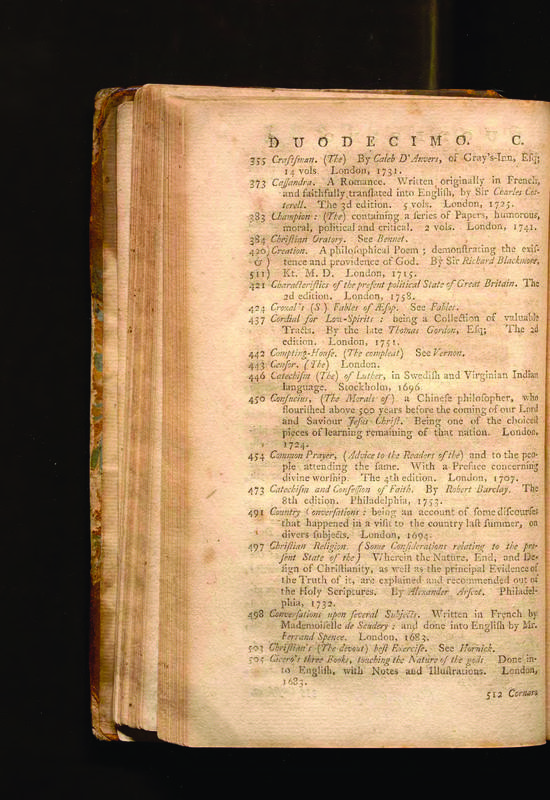 DUODECIMO. C.
355 Craftſman. (The) By Caleb D'Anvers, of Gray's-Inn, Eſq;
14 vols. London, 1731.
373 Caſſandra. A Romance. Written originally in French,
and faithfully tranſlated into Engliſh, by Sir Charles Cot-
terell. The 3d edition. 5 vols. London, 1725.
383 Champion: (The) containing a ſeries of Papers, humorous,
moral, political and critical. 2 vols. London, 1741.
384 Chriſtian Oratory. See Bennet.
420) Creation. A philoſophical Poem; demonſtrating the exiſ-
& ) tence and providence of God. By Sir Richard Blackmore,
511) Kt. M. D. London, 1715.
421 Characteriſtics of the preſent political State of Great Britain. The
2d edition. London, 1758.
424 Croxal's (S) Fables of Æſop. See Fables.
437 Cordial for Low-Spirits: being a Collection of valuable
Tracts. By the late Thomas Gordon, Eſq; The 2d
edition. London, 1751.
442 Compting-Houſe. (The compleat) See Vernon.
443 Cenſor. (The) London.
446 Catechiſm (The) of Luther, in Swediſh and Virginian Indian
language. Stockholm, 1696
450 Confucius, (The Morals of) a Chineſe philoſopher, who
flouriſhed above 500 years before the coming of our Lord
and Saviour Jeſus Chriſt. Being one of the choiceſt
pieces of learning remaining of that nation. London,
1724.
454 Common Prayer, (Advice to the Readers of the) and to the peo-
ple attending the ſame. With a Preface concerning
divine worſhip. The 4th edition. London, 1707.
473 Catechiſm and Confeſſion of Faith. By Robert Barclay. The
8th edition. Philadelphia, 1753.
491 Country Converſations: being an account of ſome diſcourſes
that happened in a viſit to the country laſt ſummer, on
divers ſubjects. London, 1694.
497 Chriſtian Religion. (Some Conſiderations relating to the pre-
ſent State of the) Wherein the Nature, End, and De-
ſign of Chriſtianity, as well as the principal Evidence of
the Truth of it, are explained and recommended out of
the Holy Scriptures. By Alexander Arſcot. Philadel-
phia, 1732.
498 Converſations upon ſeveral Subjects. Written in French by
Mademoiſelle de Scudery: and done into Engliſh by Mr.
Ferrand Spence. London, 1683.
503 Chriſtian's (The devout) beſt Exerciſe. See Hornick.
505 Cicero's three Books, touching the Nature of the gods Done in-
to Engliſh, with Notes and Illuſtrations. London,
1683.
512 Cornaro